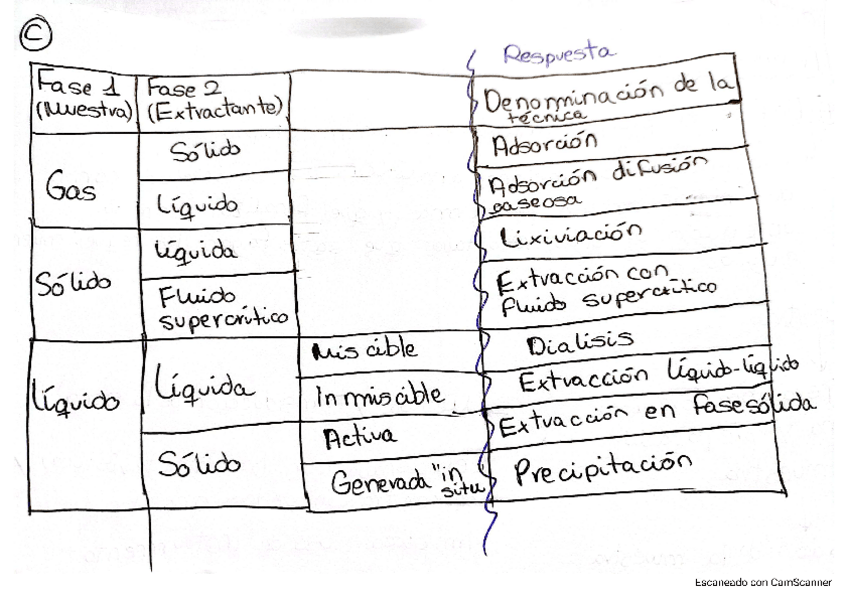 C
Respuesta
Fase 1
(Muestra)
Fase 2
(Extractante)
Denorminación de la
técnica
Gas
Sólido
Adsorción
Líquido
Adsorción difusión
gaseosa
Sólido
Líquida
Lixiviación
Fluido
supercrítico
Extracción con
fluido supercrítico
Líquido
Líquida
Miscible
Dialisis
Inmiscible
Extracción líquido-líquido
Sólido
Activa
Extracción en fase sólida
Generada "in
situ
Precipitación
Escaneado con CamScanner